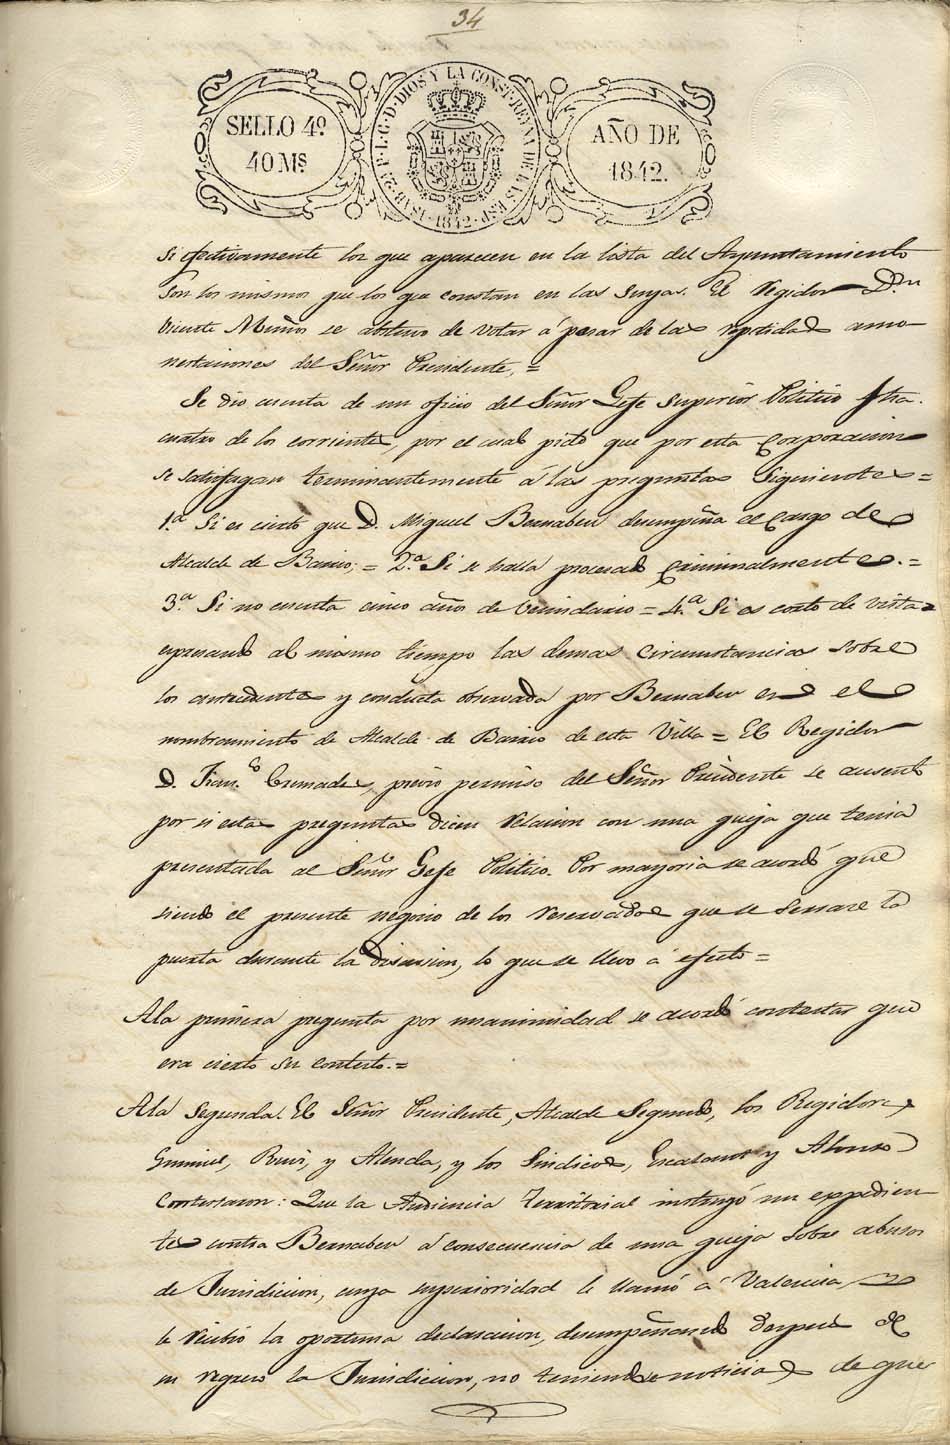 34
SELLO 4º
40 Mˢ
ISAB. 2ª P. L. G. D. DIOS Y LA CONST. REYNA DE LAS ESP. 1842
AÑO DE
1842.
si efectivamente los que aparecen en la lista del Ayuntamiento
son los mismos que los que constan en las suyas. El Regidor Dⁿ
Vicente se abstuvo de votar á pesar de las repetidas amo
nestaciones del Señor Presidente, =
Se dio cuenta de un oficio del Señor Gefe Superior Politico fha.
cuatro de los corrientes, por el cual pide que por esta Corporacion
se satisfagan terminantemente á las preguntas siguientes =
1.ª Si es cierto que D. Miguel Bernabeu desempeña el cargo de
Alcalde de Barrio; = 2.ª Si se halla procesado criminalmente. =
3.ª Si no cuenta cinco años de vecindario = 4.ª Si es corto de vista =
espresando al mismo tiempo las demas circunstancias sobre
los antecedentes y conducta observada por Bernabeu en el
nombramiento de Alcalde de Barrio de esta Villa = El Regidor
D. Franᶜᵒ Cremades, previo permiso del Señor Presidente se ausentó
por si estas preguntas dicen relacion con una queja que tenia
presentada al Señor Gefe Politico. Por mayoria se acordó que
siendo el presente negocio de los reservados que se serrase la
puerta durante la discusion, lo que se llevo á efecto =
A la primera pregunta por unanimidad se acordó contestar que
era cierto su contesto. =
A la segunda. El Señor Presidente, Alcalde Segundo, los Regidores
Guimiel, Ruis, y Alenda, y los Sindicos, Escalante y Alonso
Contestaron: Que la Audiencia territorial instruyó un expedien
te contra Bernabeu á consecuencia de una queja sobre abusos
de Jurisdicion, cuya superioridad le llamó á Valencia,
le recibió la oportuna declaracion, desempeñando despues de
su regreso la Jurisdicion, no teniendose noticias de que